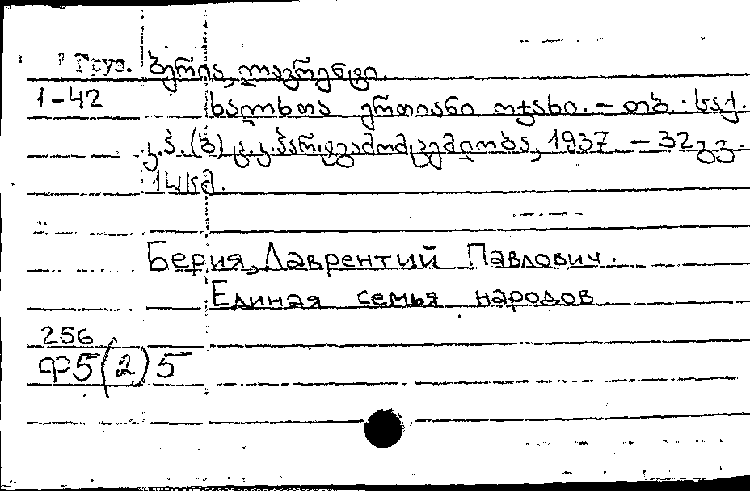 Груз. ბერია, ლავრენტი.
1-42 ხალხთა ერთიანი ოჯახი. – თბ. საქ.
კ.პ.(ბ) ც.კ. პარტგამომცემლობა, 1937 – 32 გვ.
Берия, Лаврентий Павлович.
Единая семья народов
256
Ф5(2)5